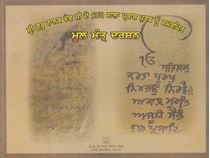 ਸ੍ਰੀ ਗੁਰੂ ਨਾਨਕ ਦੇਵ ਜੀ ਦੇ 550 ਸਾਲਾ ਪ੍ਰਕਾਸ਼ ਪੁਰਬ ਨੂੰ ਸਮਰਪਿਤ
ਮੂਲ ਮੰਤ੍ਰ ਦਰਸ਼ਨ
ੴ ਸਤਿਨਾਮੁ
ਕਰਤਾ ਪੁਰਖੁ
ਨਿਰਭਉ ਨਿਰਵੈਰੁ
ਅਕਾਲ ਮੂਰਤਿ
ਅਜੂਨੀ ਸੈਭੰ
ਗੁਰ ਪ੍ਰਸਾਦਿ